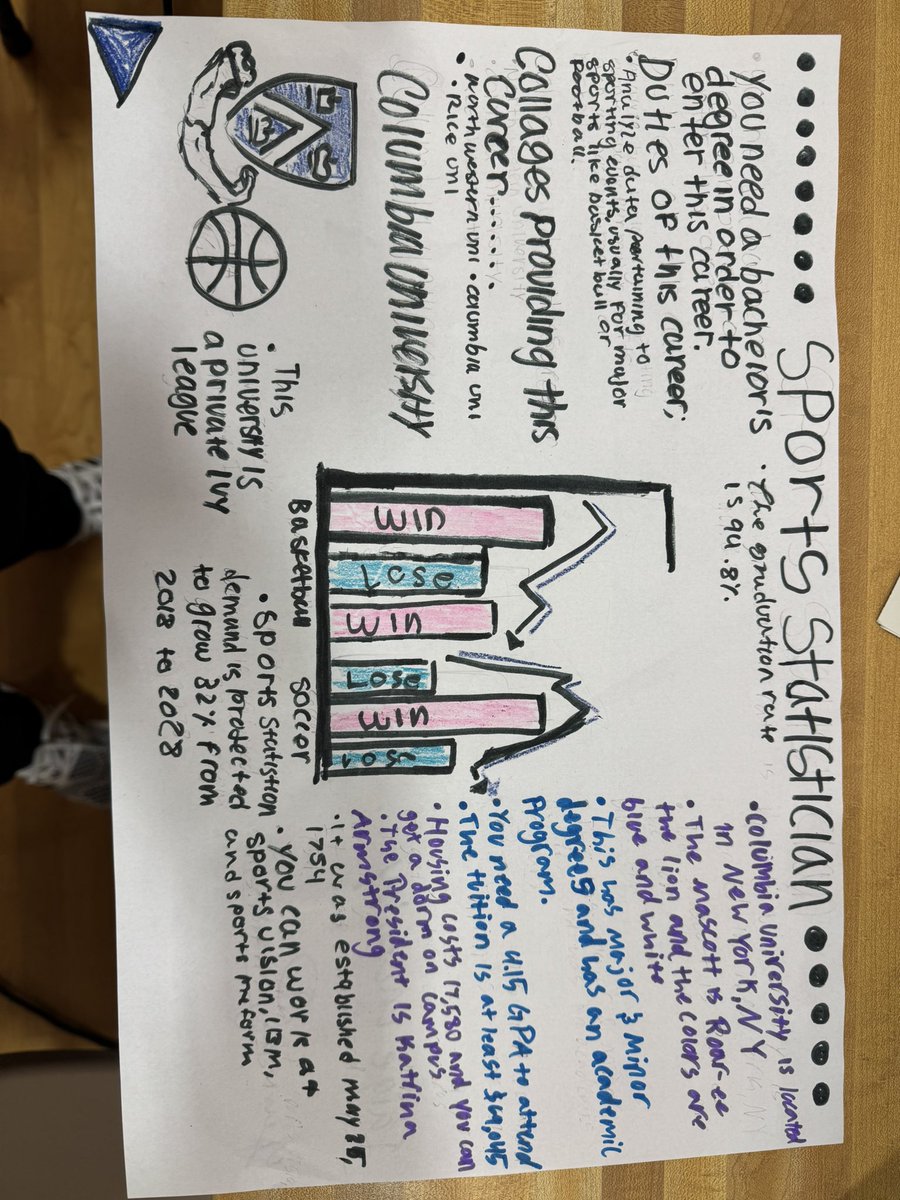 Sports Statistician
• You need a bachelor's
degree in order to
enter this career.
Duties of this career;
• Anulize data pertaining to
sporting events, usually for major
sports like basketball or
football.
Collages providing this
Career......
• northwestern uni • columbia uni
• Rice uni
Columbia University
• This
university is
a private Ivy
league
• The graduation rate
is 94.8%.
Basketball
soccor
• Sports Statistion
demand is protected
to grow 32% from
2018 to 2028
• Columbia university is located
in New York, NY
• The mascott is Roar-ee
the lion and the colors are
blue and white
• This has major & minor
degrees and has an academic
program.
• You need a 4.15 GPA to attend
• The tuition is at least $64,045
• Housing costs 17,580 and you can
get a dorm on campus
• The President is Katrina
Armstrong
• It was established may 25,
1754
• You can work at
sports vision, IBM,
and sports meform